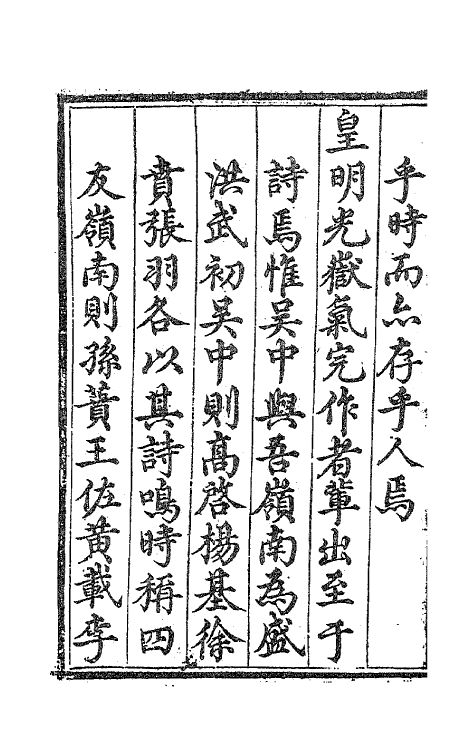 乎時而亦存乎人焉
皇明光嶽氣完作者輩出至于
詩焉惟吴中與吾嶺南為盛
洪武初吴中則高啓楊基徐
賁張羽各以其詩鳴時稱四
友嶺南則孫蕡王佐黄載李